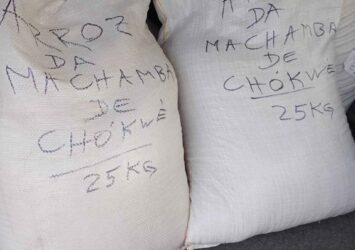 ARROZ
DA
MACHAMBA
DE
CHÓKWÈ
25KG
DA
MACHAMBA
DE
CHÓKWÈ
25KG